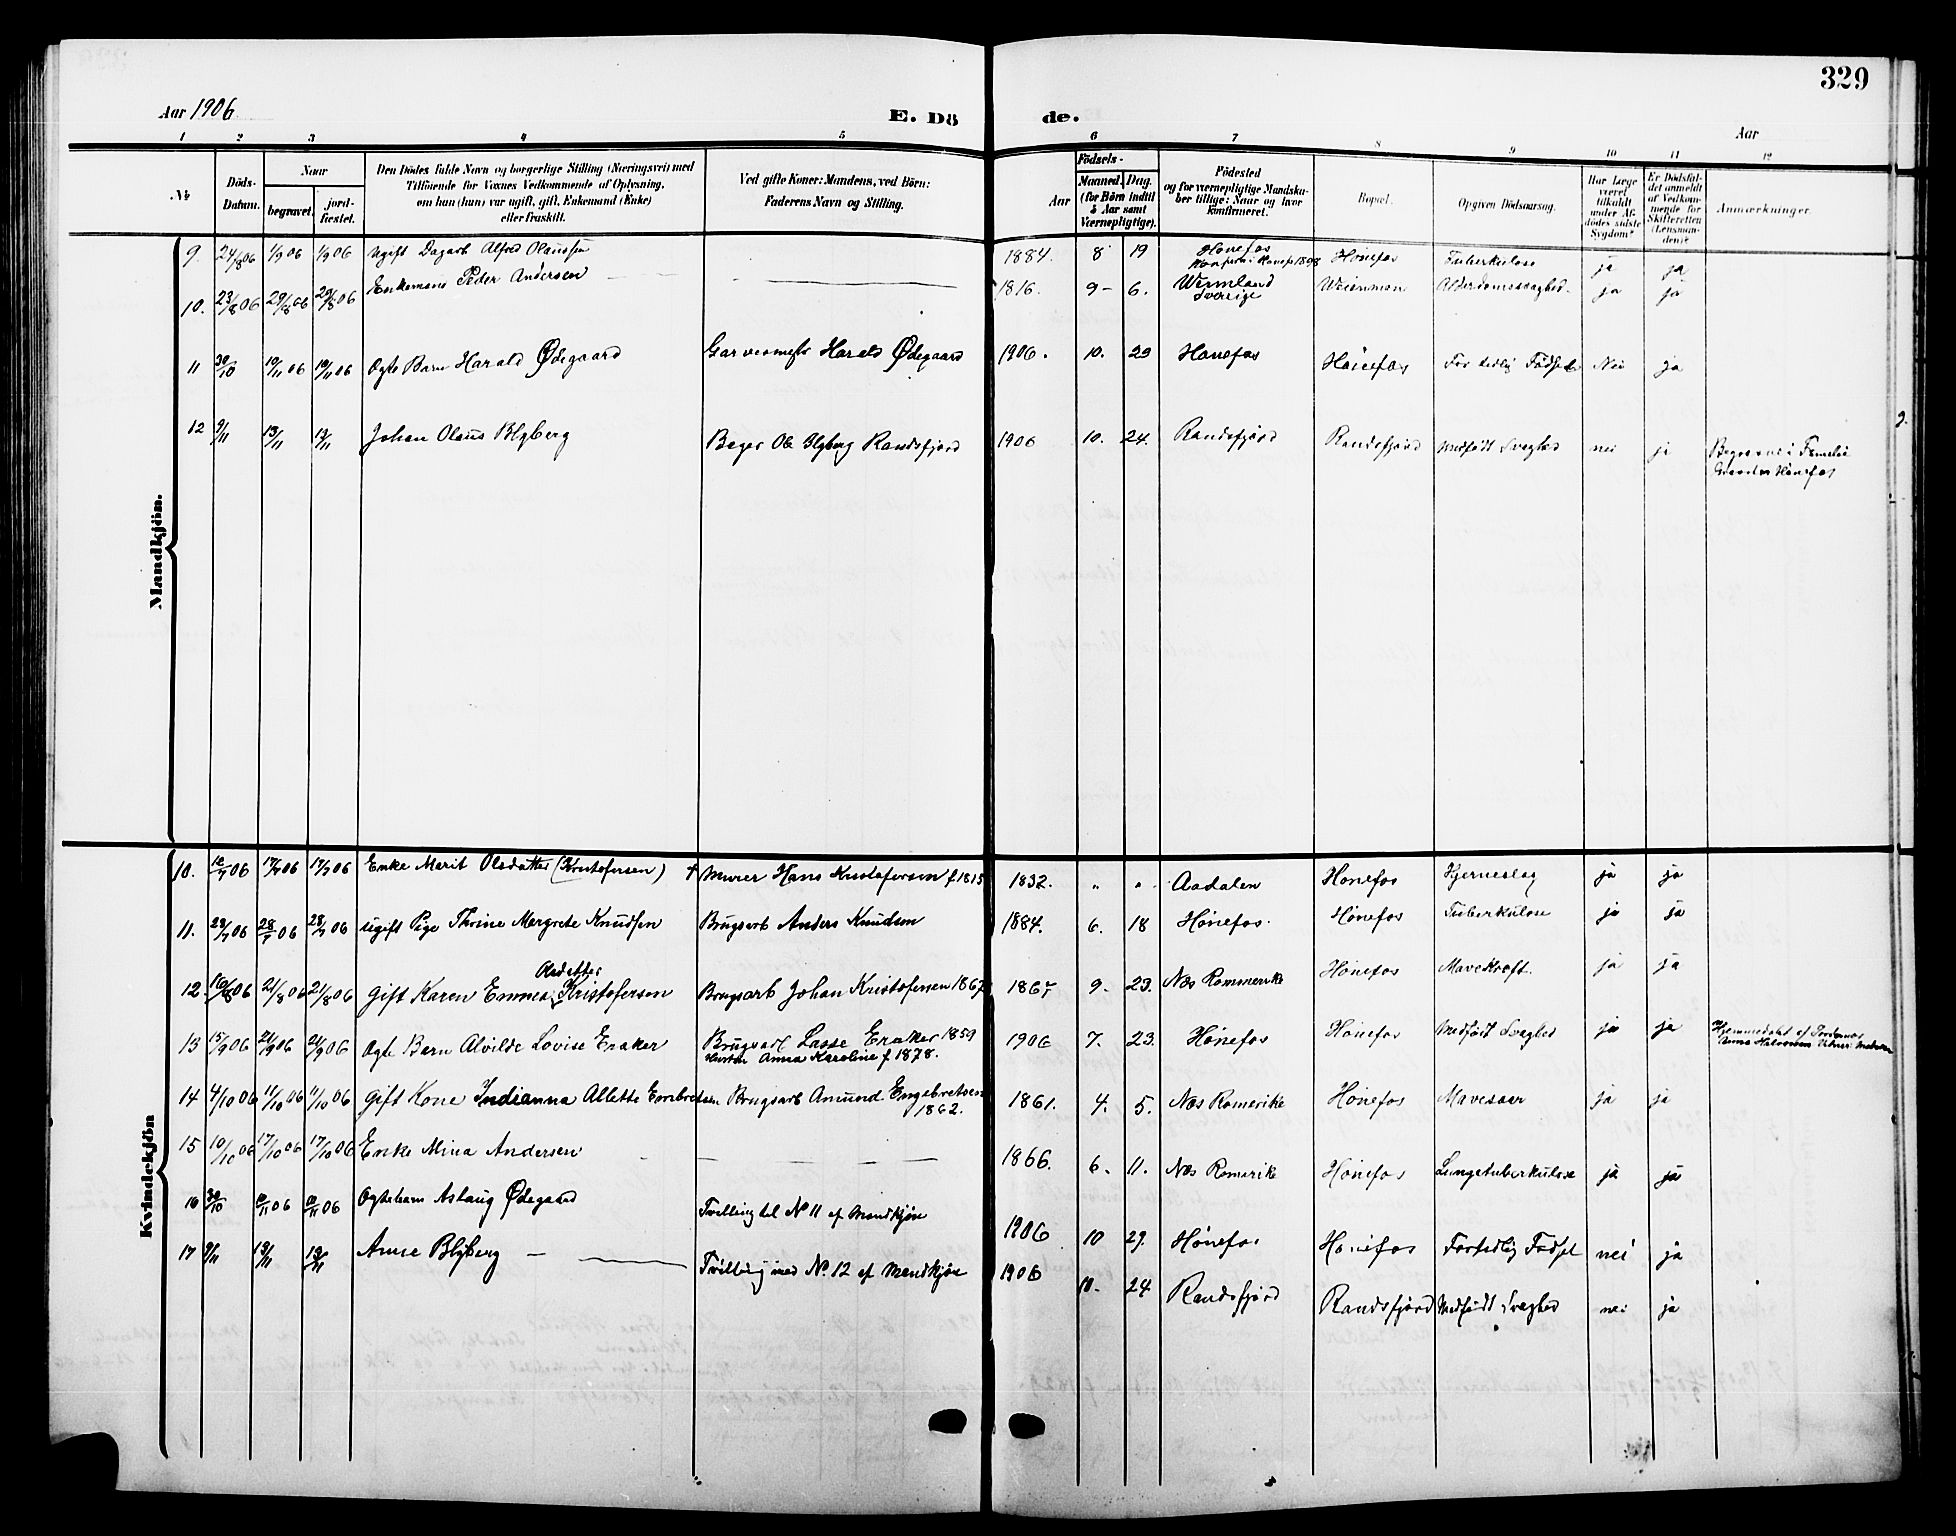 329
Aar 1906
E. Dö
de.
Aar
1 2 3 4 5 6 7 8 9 10 11 12
No
Döds-Datum.
Naar
begravet.
jord-fæstet.
Den Dödes fulde Navn og borgerlige Stilling (Næringsvei) med
Tilföiende for Voxnes Vedkommende af Oplysning,
om han (hun) var ugift, gift, Enkemand (Enke)
eller fraskilt.
Ved gifte Koner: Mandens, ved Börn:
Faderens Navn og Stilling.
Födsels-
Aar
Maaned. Dag.
(for Börn indtil
5 Aar samt
Værnepligtige).
Födested
og for værnepligtige Mandska-
ber tillige: Naar og hvor
konfirmeret.
Bopæl.
Opgiven Dödsaarsag.
Har Læge
været
tilkaldt
under Af-
dödes sidste
Sygdom?
Er Dödsfal-
det anmeldt
af Vedkom-
mende for
Skifteretten
(Lensman-
den)?
Anmærkninger.
Mandkjön.
9. 24/8 06 1/9 06 1/9 06 Ugift Dagarb Alfred Olaussen — 1884. 8 19 Hønefos Hønefos Tuberkulose ja ja
10. 23/8 06 29/8 06 29/8 06 Enkemand Peder Andersen — 1816. 9 - 6. Wermland Sverige Alderdomssvaghed. ja ja
11 30/10 10/11 06 10/11 06 Ogte Barn Harald Ødegaard Garvermestr Harald Ødegaard 1906. 10. 29 Hønefos Hønefos For tidlig Fødsel Nei ja
12 9/11 13/11 13/11 Johan Olaus Blyberg Bager Ole Blyberg Randsfjord 1906 10. 24. Randsfjord Randsfjord Medfødt Svaghed nei ja Begravet i Familie
Hønefos
Kvindekjön
10. 10/7 06 17/7 06 17/7 06 Enke Marit Olsdatter (Kristofersen) + Murer Hans Kristofersen f 1815 1832. " " Aadalen Hønefos Hjerneslag ja ja
11. 23/7 06 28/7 06 28/7 06 ugift Pige Thrine Mergrete Knudsen Brugsarb Anders Knudsen 1884. 6. 18 Hønefos. Hønefos Tuberkulose ja ja
Olsdatter
12. 16/8 06 21/8 06 21/8 06 Gift Karen Emma Kristofersen Brugsarb Johan Kristofersen 1867 1867 9 - 23. Næs Rommerike Hønefos Mavekræft. ja ja
13 15/9 06 21/9 06 21/9 06 Ogte Barn Alvilde Lovise Eraker Brugsarb Lasse Eraker 1859
Hustru Anna Karoline f 1878.
1906 7. 23. Hønefos Hønefos Medfødt Svaghed ja ja Hjemmedøbt af Jordemor
14 4/10 06 11/10 06 11/10 06 Gift Kone Indianna Allette Embretsen Brugsarb Amund Engebretsen
1862.
1861. 4. 5. Næs Romerike Hønefos Mavesaar ja ja
15 10/10 06 17/10 06 17/10 06 Enke Mina Andersen — 1866. 6. 11. Næs Romerike Hønefos Lungetuberkulose ja ja
16 30/10 10/11 06 10/11 06 Ogtebarn Aslaug Ødegaard Tvilling til No 11 af Mandkjøn 1906 10 29. Hønefos Hønefos Fortidlig Fødsel nei ja
17 9/11 13/11 13/11 Anne Blyberg — Tvilling med No. 12 af Mandkjøn 1906 10. 24 Randsfjord Randsfjord Medfødt Svaghed nei ja